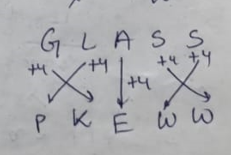 G L A S S
+4 +4 +4 +4 +4
P K E W W